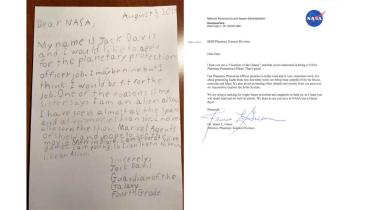 August 3, 2017
Dear NASA,
My name is Jack Davis
and I would like to apply
for the planetary protection
officer job. I may be nine but I
think I would be fit for the
job. One of the reasons is my
sister says I am an alien also
I have seen almost all the space
and alien movies I can see. I have
also seen the show Marvel Agents
of Shield and hope to see the
movie Men in Black. I am great at video
games. I am young, so I can learn to think
like an Alien.
Sincerely,
Jack Davis
Guardian of the
Galaxy
Fourth Grade
National Aeronautics and Space Administration
Headquarters
Washington, DC 20546-0001
NASA
SMD/Planetary Science Division
Dear Jack,
I hear you are a "Guardian of the Galaxy" and that you're interested in being a NASA
Planetary Protection Officer. That's great!
Our Planetary Protection Officer position is really cool and is very important work. It's
about protecting Earth from tiny microbes when we bring back samples from the Moon,
asteroids and Mars. It's also about protecting other planets and moons from our germs as
we responsibly explore the Solar System.
We are always looking for bright future scientists and engineers to help us, so I hope you
will study hard and do well in school. We hope to see you here at NASA one of these
days!
Sincerely,
Dr. James L. Green
Director, Planetary Science Division